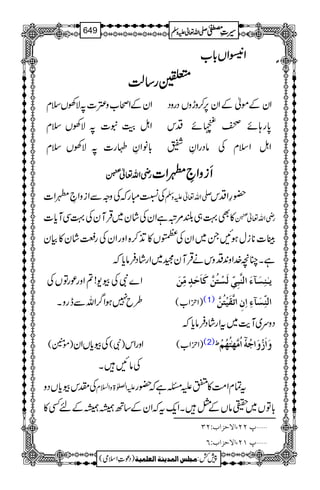 سیرتِ مصطفیٰ صلی اللہ تعالیٰ علیہ وسلم 649
انیسواں باب
متعلقینِ رسالت
ان کے مولیٰ کے ان پر کروڑوں درود ان کے اصحاب و عترت پہ لاکھوں سلام
پارہائے صحف غنچہائے قدس اہل بیتِ نبوت پہ لاکھوں سلام
اہل اسلام کی مادرانِ شفیق بانوانِ طہارت پہ لاکھوں سلام
اَزواجِ مطہرات رضی اللہ تعالیٰ عنہن
حضورِ اقدس صلی اللہ تعالیٰ علیہ وسلم کی نسبتِ مبارکہ کی وجہ سے ازواجِ مطہرات
رضی اللہ تعالیٰ عنہن کا بھی بہت ہی بلند مرتبہ ہے ان کی شان میں قرآن کی بہت سی آیات
بینات نازل ہوئیں جن میں ان کی عظمتوں کا تذکرہ اور ان کی رفعتِ شان کا بیان
ہے۔ چنانچہ خداوند قدوس نے قرآن مجید میں ارشاد فرمایا کہ
یٰنِسَآءَ النَّبِیِّ لَسْتُنَّ كَاَحَدٍ مِّنَ اے نبی کی بیویو! تم اور عورتوں کی
النِّسَآءِ اِنِ اتَّقَیْتُنَّ (1) (احزاب) طرح نہیں ہو اگر اللہ سے ڈرو۔
دوسری آیت میں یہ ارشاد فرمایا کہ
وَ اَزْوَاجُهٗۤ اُمَّهٰتُهُمْ (2) (احزاب) اور اس (نبی) کی بیویاں ان (مؤمنین)
کی مائیں ہیں۔
یہ تمام امت کا متفق علیہ مسئلہ ہے کہ حضور علیہ الصلوۃ والسلام کی مقدس بیویاں دو
باتوں میں حقیقی ماں کے مثل ہیں۔ ایک یہ کہ ان کے ساتھ ہمیشہ ہمیشہ کے لئے کسی کا
پ ۲۲، الاحزاب: ۳۲
پ ۲۱، الاحزاب: ۶
پیش کش: مجلس المدینۃ العلمیۃ (دعوتِ اسلامی)